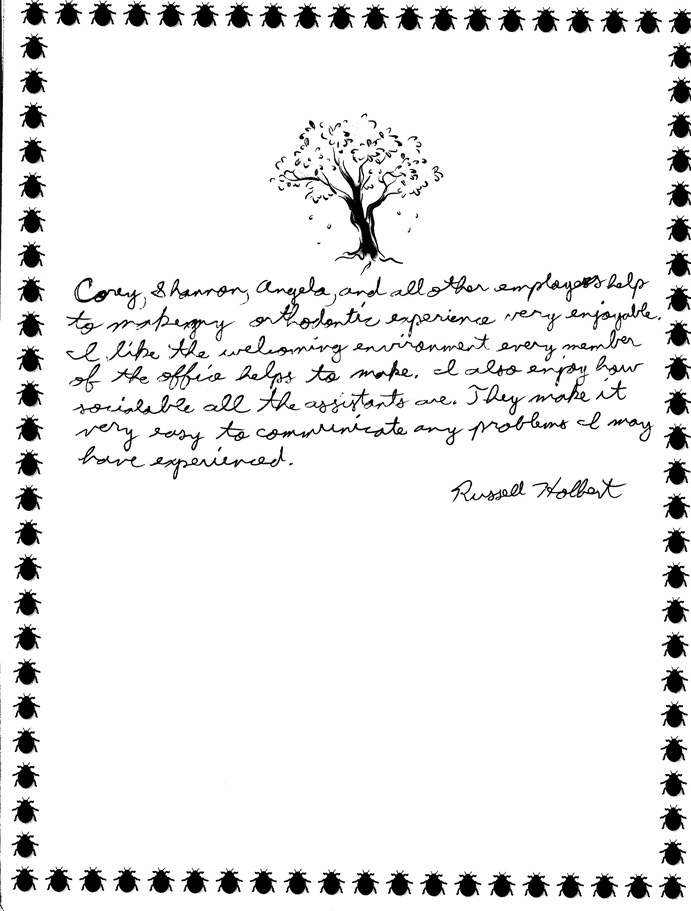 Corey, Shannon, Angela, and all other employees help
to make my orthodontic experience very enjoyable.
I like the welcoming environment every member
of the office helps to make. I also enjoy how
socialable all the assistants are. They make it
very easy to communicate any problems I may
have experienced.
Russell Holbert